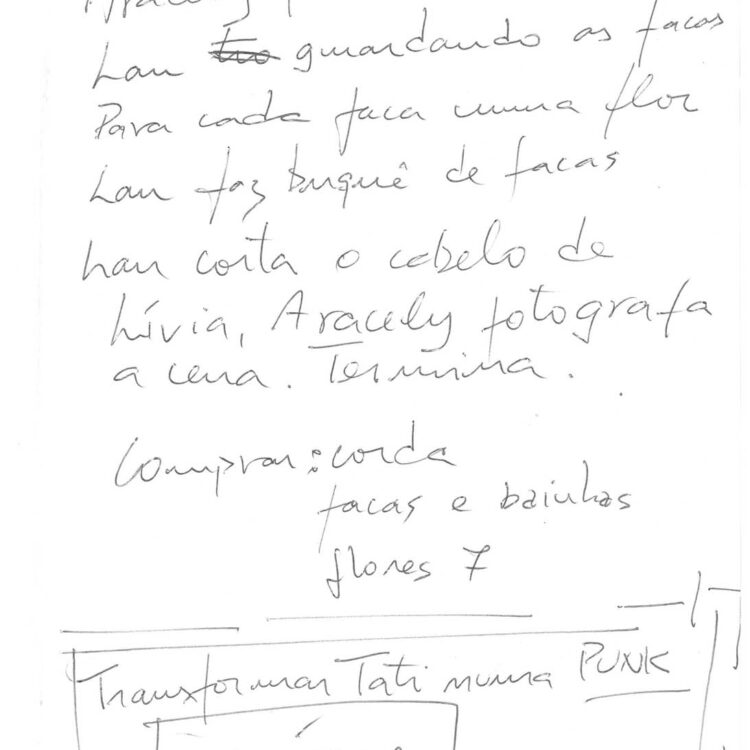 Lau guardando as facas
Para cada faca numa flor
Lau faz buquê de facas
Lau corta o cabelo de
Lívia, Aracely fotografa
a cena. Termina.
Comprar: corda
facas e bainhas
flores 7
Transformar Tati numa PUNK